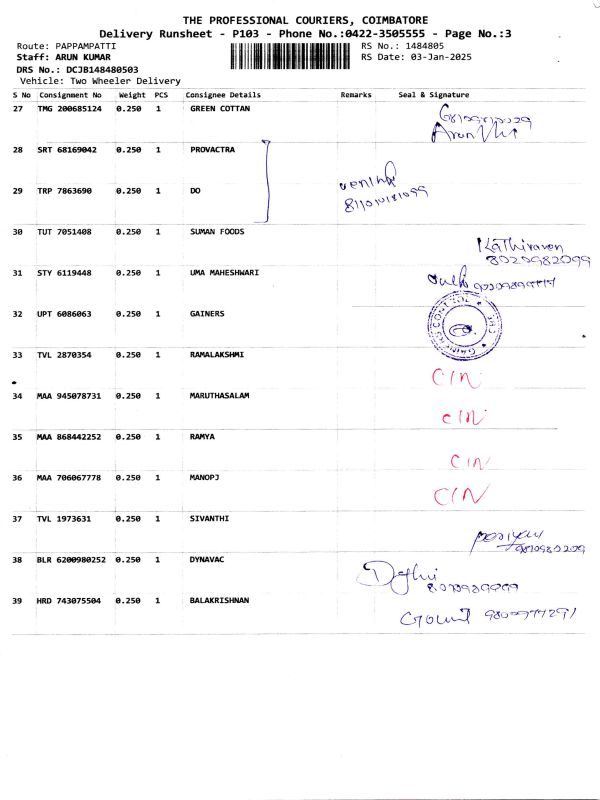 THE PROFESSIONAL COURIERS, COIMBATORE
Delivery Runsheet - P103 - Phone No.:0422-3505555 - Page No.:3
Route: PAPPAMPATTI RS No.: 1484805
Staff: ARUN KUMAR RS Date: 03-Jan-2025
DRS No.: DCJB148480503
Vehicle: Two Wheeler Delivery
S No Consignment No Weight PCS Consignee Details Remarks Seal & Signature
27 TMG 200685124 0.250 1 GREEN COTTAN
Arun
28 SRT 68169042 0.250 1 PROVACTRA
29 TRP 7863690 0.250 1 DO
30 TUT 7051408 0.250 1 SUMAN FOODS
Kathiravan
8020982099
31 STY 6119448 0.250 1 UMA MAHESHWARI
32 UPT 6086063 0.250 1 GAINERS
33 TVL 2870354 0.250 1 RAMALAKSHMI
C/N
34 MAA 945078731 0.250 1 MARUTHASALAM
C/N
35 MAA 868442252 0.250 1 RAMYA
C/N
36 MAA 706067778 0.250 1 MANOPJ
C/N
37 TVL 1973631 0.250 1 SIVANTHI
38 BLR 6200980252 0.250 1 DYNAVAC
39 HRD 743075504 0.250 1 BALAKRISHNAN